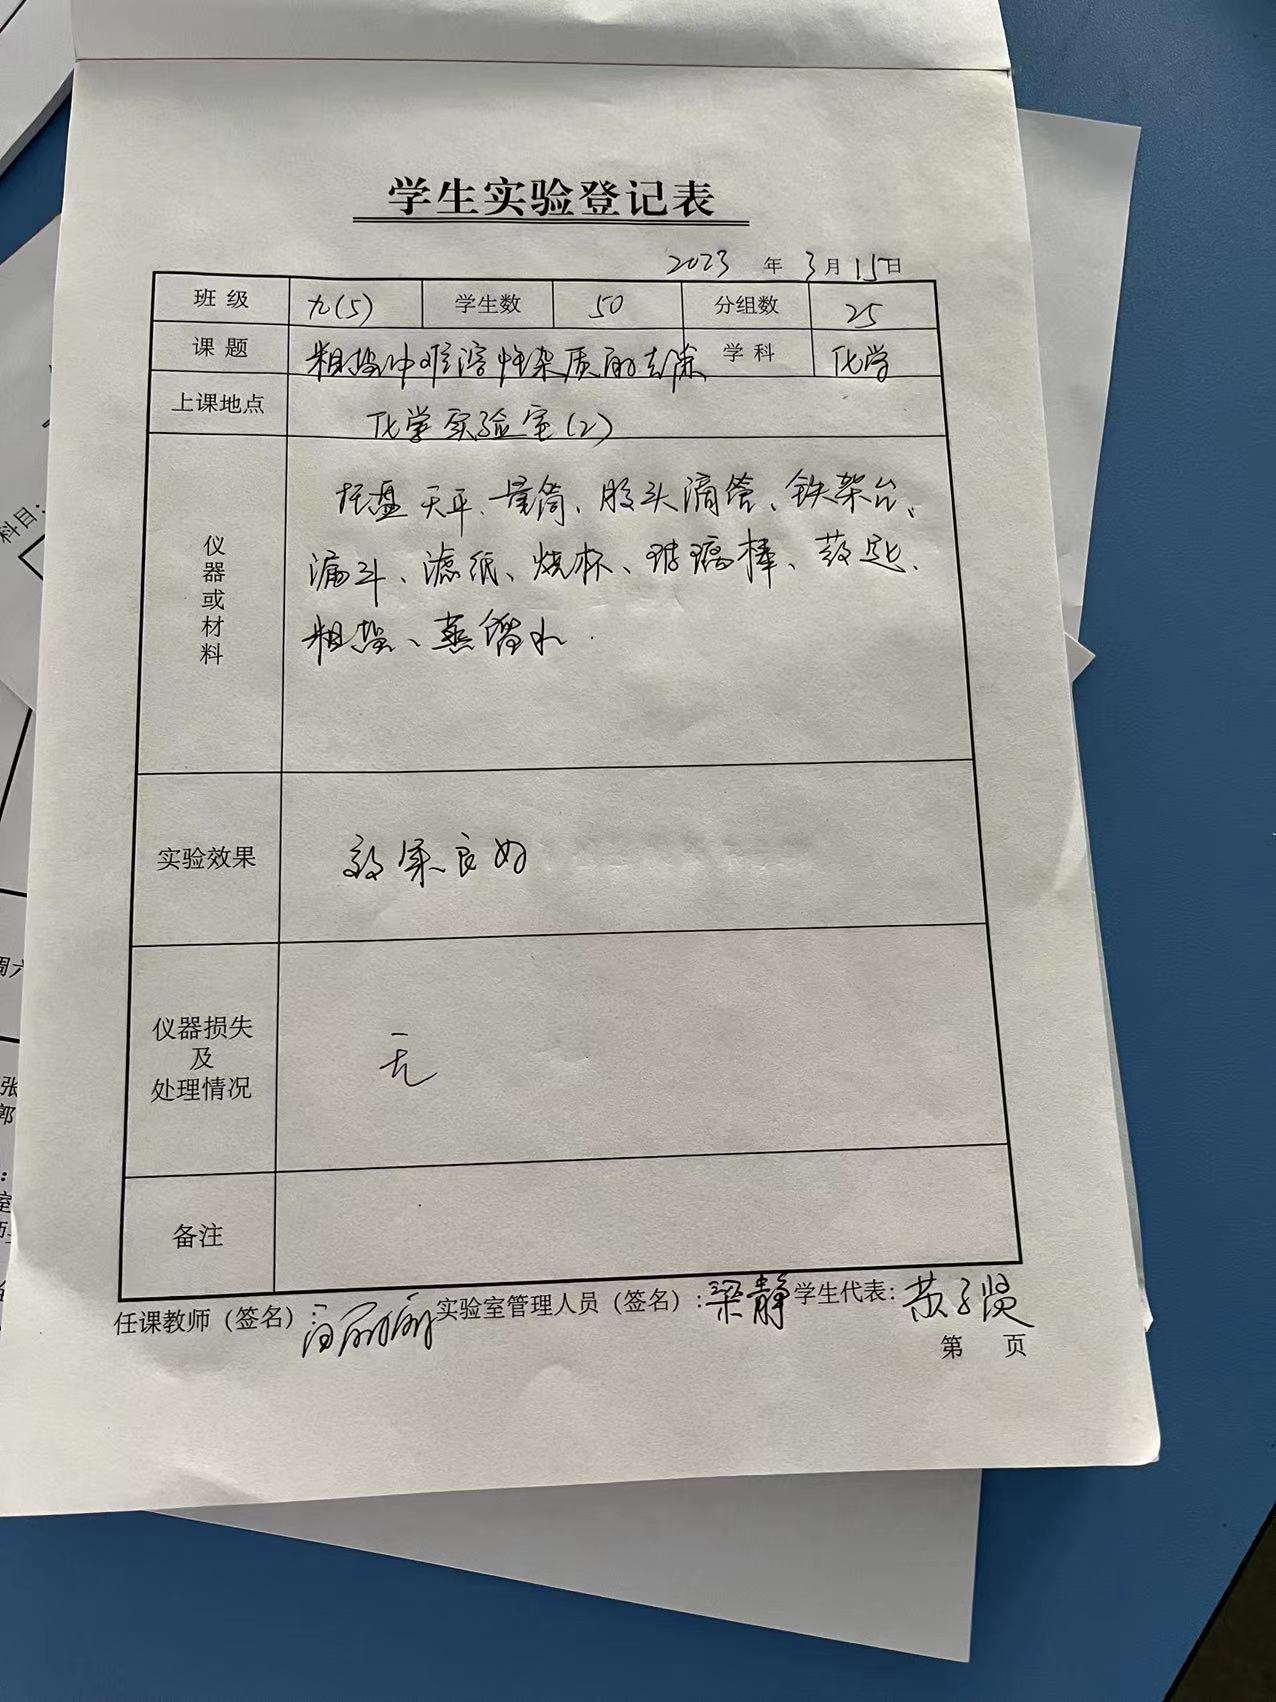 学生实验登记表
2023 年 3月15日
班级 九(5) 学生数 50 分组数 25
课题 粗盐中难溶性杂质的去除 学科 化学
上课地点 化学实验室(2)
仪器或材料
托盘天平、量筒、胶头滴管、铁架台、
漏斗、滤纸、烧杯、玻璃棒、药匙、
粗盐、蒸馏水.
实验效果 效果良好
仪器损失
及
处理情况
无
备注
任课教师（签名）: 实验室管理人员（签名）: 梁静 学生代表: 黄子贤
第 页
科目:
周六
张
郭